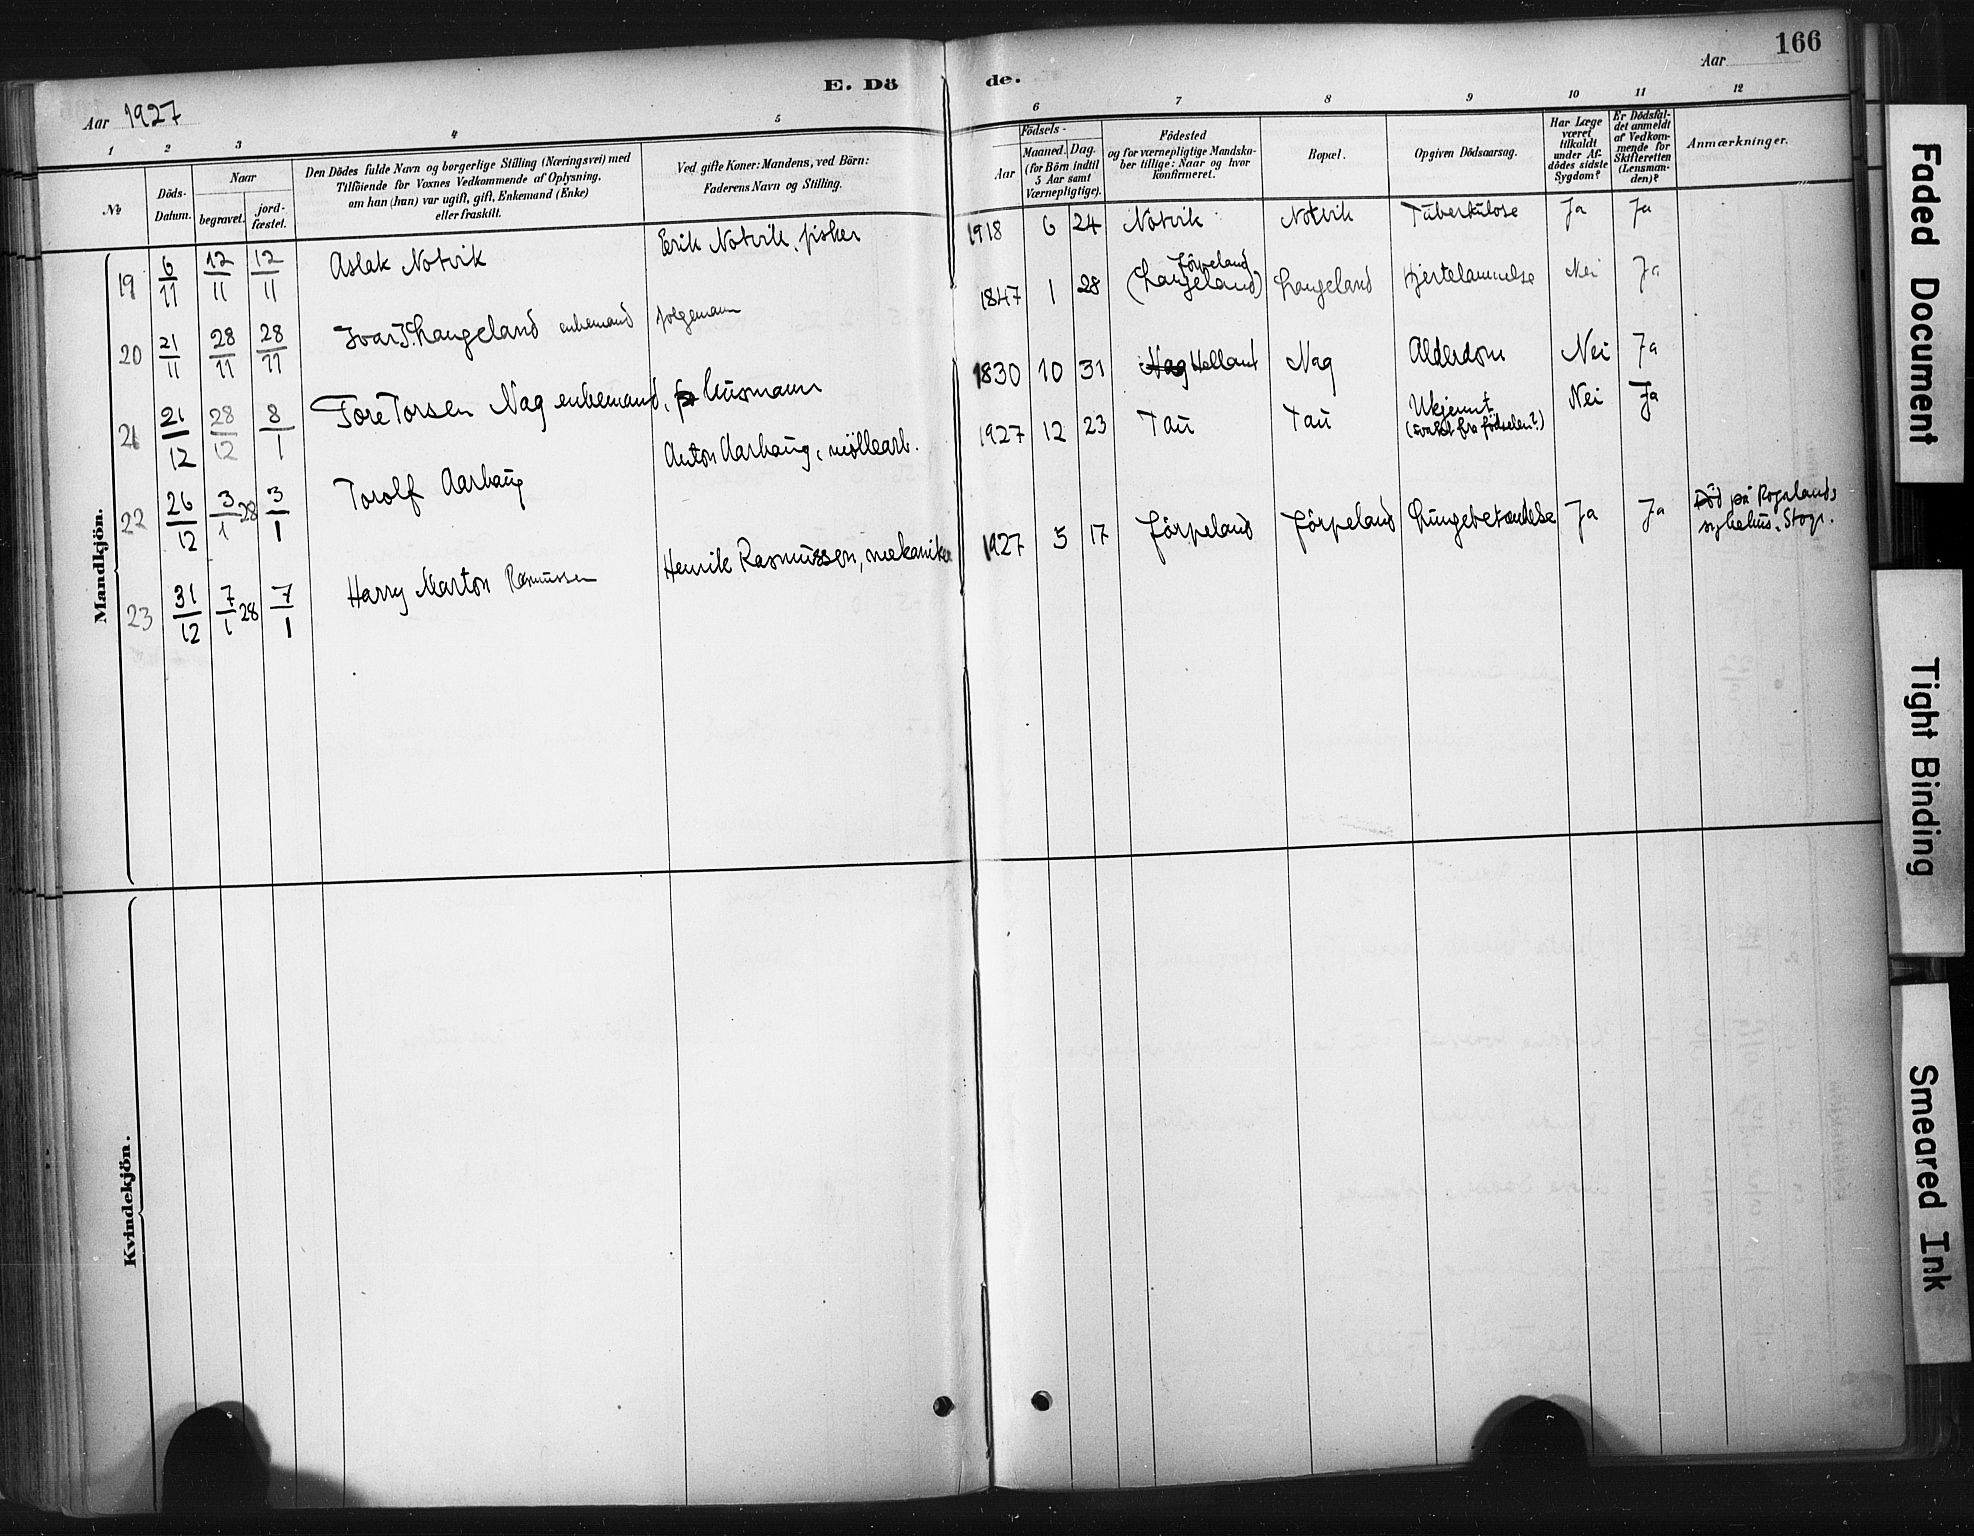 166
E. Dö de.
Aar 1927
Aar
1 2 3 4 5 6 7 8 9 10 11 12
№
Döds-Datum.
Naar
begravet.
jord-fæstet.
Den Dödes fulde Navn og borgerlige Stilling (Næringsvei) med
Tilföiende for Voxnes Vedkommende af Oplysning,
om han (hun) var ugift, gift, Enkemand (Enke)
eller fraskilt.
Ved gifte Koner: Mandens, ved Börn:
Faderens Navn og Stilling.
Födsels-
Aar
Maaned. Dag.
(for Börn indtil
5 Aar samt
Værnepligtige).
Födested
og for værnepligtige Mandska-
ber tillige: Naar og hvor
konfirmeret.
Bopæl.
Opgiven Dödsaarsag.
Har Læge
været
tilkaldt
under Af-
dödes sidste
Sygdom?
Er Dödsfal-
det anmeldt
af Vedkom-
mende for
Skifteretten
(Lensman-
den)?
Anmærkninger.
Mandkjön.
19 6/11 12/11 12/11 Aslak Notvik Erik Notvik, fisker 1918 6 24 Notvik Notvik Tuberkulose Ja Ja
20 21/11 28/11 28/11 Ivar J. Langeland enkemand folgemann 1847 1 28 Jörpeland (Langeland) Langeland Hjertelammelse Nei Ja
21 21/12 28/12 8/1 Tore Torsen Nag enkemand, husmann 1830 10 31 Nag Helland Nag Alderdom Nei Ja
22 26/12 3/1 28 3/1 Torolf Aarhaug Anton Aarhaug, möllearb. 1927 12 23 Tau Tau Ukjennt (svakt fra födselen?) Nei Ja
23 31/12 7/1 28 7/1 Harry Marton Rasmussen Henrik Rasmussen, mekaniker 1927 5 17 Jörpeland Jörpeland Lungebetændelse Ja Ja Död på Rogalands
sykehus, Stvgr.
Kvindekjön.
Faded Document
Tight Binding
Smeared Ink